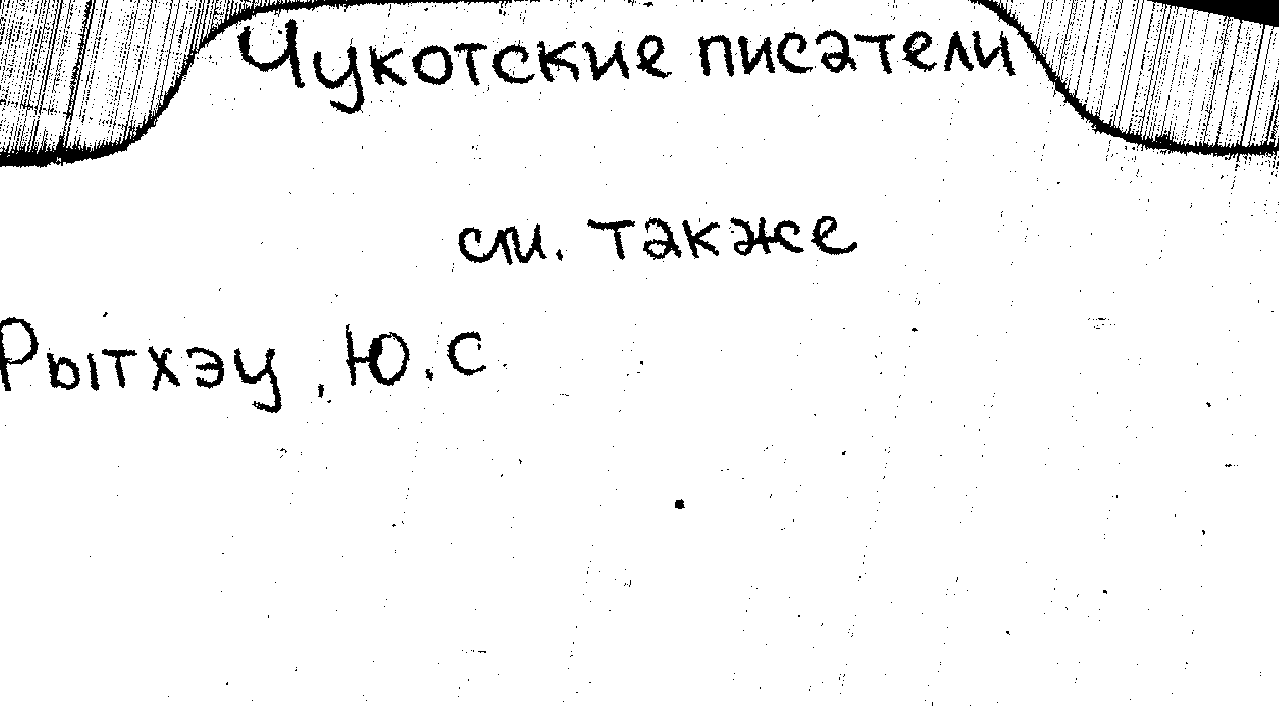 Чукотские писатели
см. также
Рытхэу, Ю.С